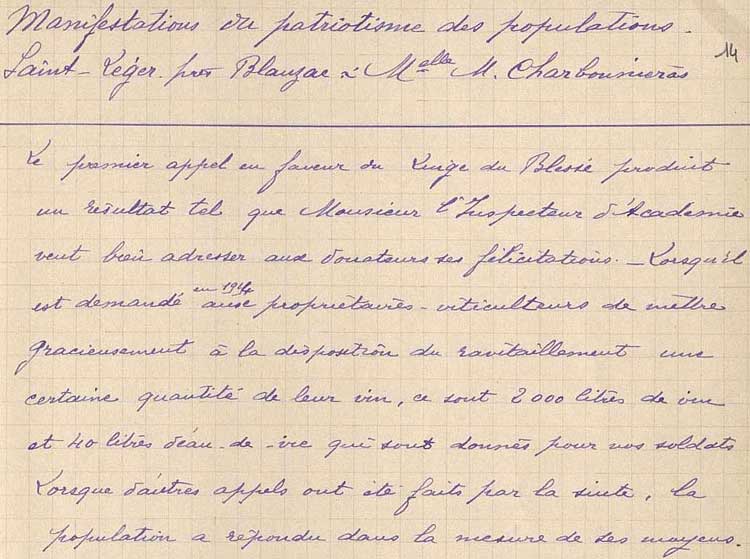 Manifestations du patriotisme des populations.
14
Saint-Léger près Blanzac : Melle M. Charbonnieras
Le premier appel en faveur du Linge du Blessé produit
un résultat tel que Monsieur l'Inspecteur d'Académie
veut bien adresser aux donateurs ses félicitations. _ Lorsqu'il
en 1914
est demandé aux propriétaires-viticulteurs de mettre
gracieusement à la disposition du ravitaillement une
certaine quantité de leur vin, ce sont 2000 litres de vin
et 40 litres d'eau-de-vie qui sont donnés pour nos soldats
Lorsque d'autres appels ont été faits par la suite, la
population a répondu dans la mesure de ses moyens.